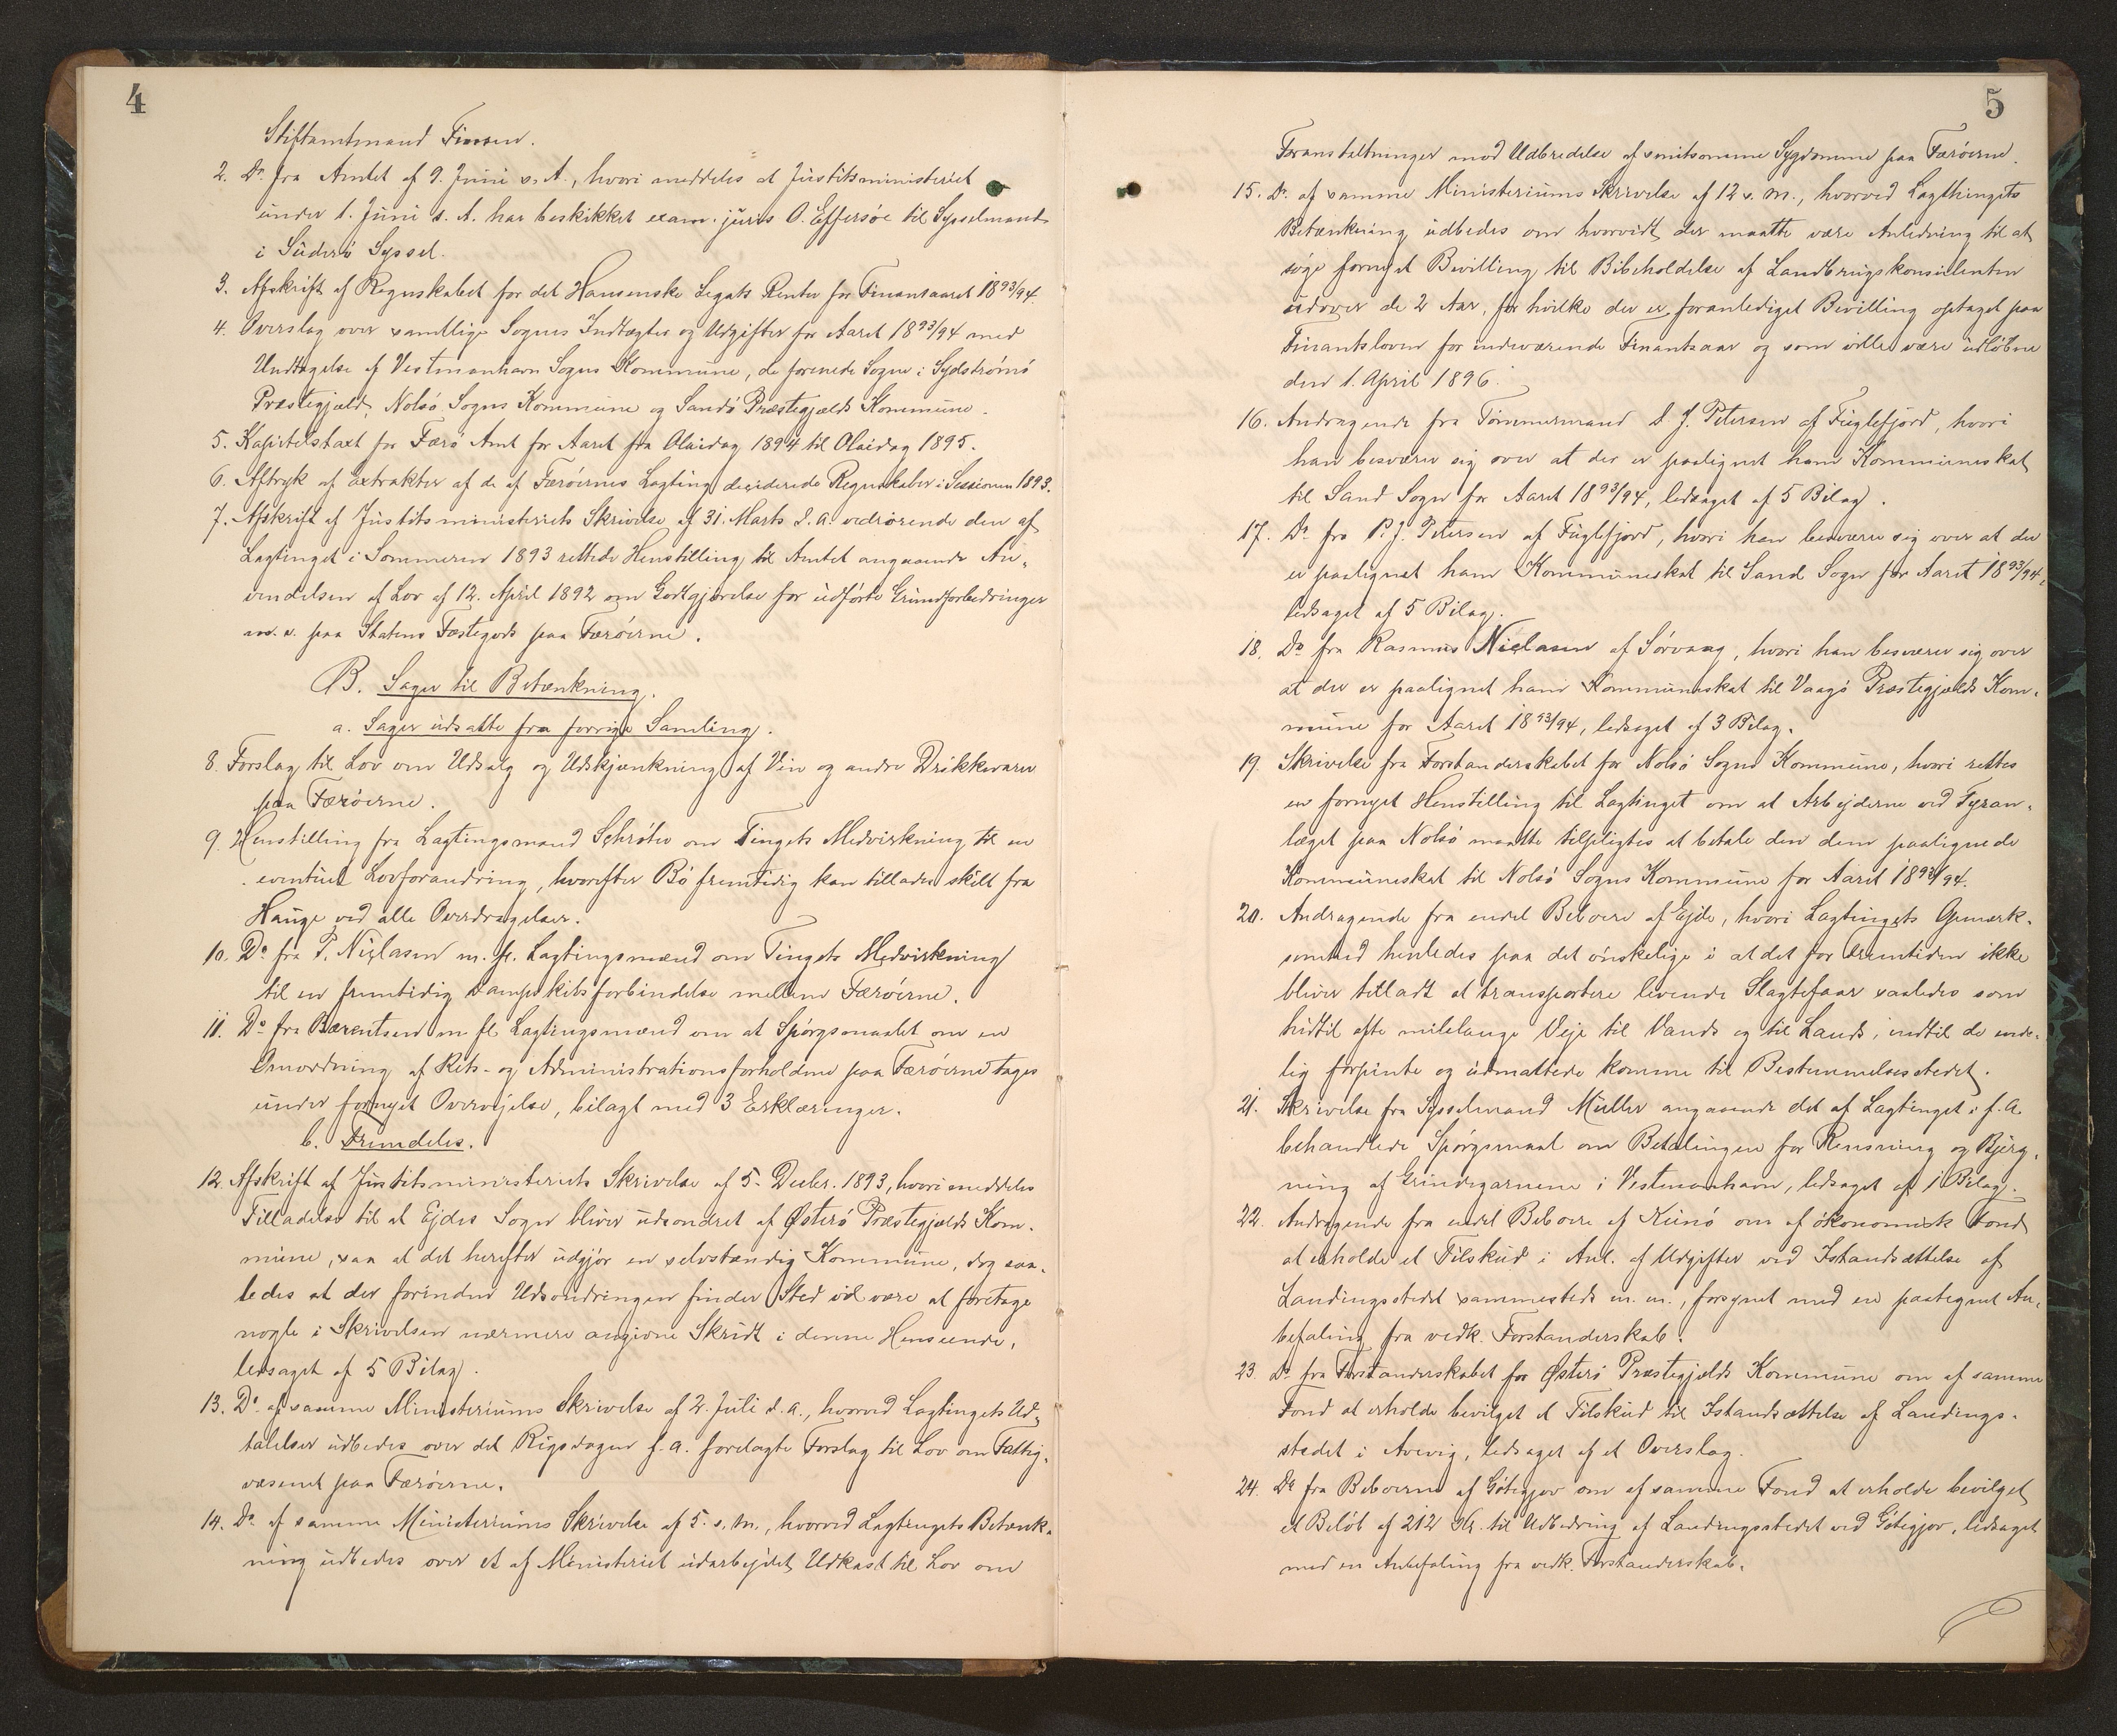 4
Stiftamtmand Finsen.
2. Do fra Amtet af 9. Juni s. A., hvori meddeles at Justitsministeriet
under 1. Juni d. A. har beskikket exam. juris O. Effersøe til Sysselmand
i Süderö Syssel.
3. Afskrift af Regnskabet for det Hansenske Legats Renter for Finantsaaret 1893/94.
4. Overslag over samtlige Sognes Indtægter og Udgifter for Aaret 1893/94 med
Undtagelse af Vestmanhavn Sogns Kommune, de forenede Sogne i Sydstrømø
Præstegjæld, Nolsö Sogns Kommune og Sandö Præstegjælds Kommune.
5. Kapitelstaxt for Færö Amt for Aaret fra Olaidag 1894 til Olaidag 1895.
6. Aftryk af Extrakter af de af Færöernes Lagting deciderede Regnskaber i Sessionen 1893.
7. Afskrift af Justitsministeriets Skrivelse af 31. Marts d. A. vedrørende den af
Lagtinget i Sommeren 1893 rettede Henstilling til Amtet angaaende An-
vendelsen af Lov af 12. April 1892 om Godtgjørelse for udførte Grundforbedringer
m. v. paa Statens Fæstegods paa Færöerne.
B. Sager til Betænkning.
a. Sager udsatte fra forrige Samling.
8. Forslag til Lov om Udsalg og Udskjænkning af Vin og andre Drikkevarer
paa Færöerne.
9. Henstilling fra Lagtingsmand Schrøter om Tingets Medvirkning til en
eventuel Lovforandring, hvorefter Bö fremtidig kan tillades skilt fra
Hauge ved alle Overdragelser.
10. Do fra P. Niclasen m. fl. Lagtingsmænd om Tingets Medvirkning
til en fremtidig Dampskibsforbindelse mellem Færöerne.
11. Do fra Bærentsen m fl. Lagtingsmænd om at Spörgsmaalet om en
Omordning af Rets- og Administrationsforholdene paa Færöerne tages
under fornyet Overvejelse, bilagt med 3 Erklæringer.
b. Fremdeles.
12. Afskrift af Justitsministeriets Skrivelse af 5. Decbr. 1893, hvori meddeles
Tilladelse til at Ejdes Sogn bliver udsondret af Østerö Præstegjælds Kom-
mune, saa at det herefter udgjör en selvstændig Kommune, dog saa-
ledes at der forinden Udsondringen finder Sted vil være at foretage
nogle i Skrivelsen nærmere angivne Skridt i denne Henseende,
ledsaget af 5 Bilag.
13. Do af samme Ministeriums Skrivelse af 2. Juli d. A., hvorved Lagtingets Ud-
talelser udbedes over det Rigsdagen f. A. forelagte Forslag til Lov om Fattig-
væsenet paa Færöerne.
14. Do af samme Ministeriums Skrivelse af 5. s. M., hvorved Lagtingets Betænk-
ning udbedes over et af Ministeriet udarbejdet Udkast til Lov om
5
Foranstaltninger mod Udbredelse af smitsomme Sygdomme paa Færöerne.
15. Do af samme Ministeriums Skrivelse af 12 s. M., hvorved Lagthingets
Betænkning udbedes om hvorvidt der maatte være Anledning til at
söge fornyet Bevilling til Bibeholdelse af Landbrugskonsulenten
udover de 2 Aar, for hvilke der er foranlediget Bevilling optaget paa
Finantsloven for indeværende Finantsaar og som ville være udløbne
den 1. April 1896.
16. Andragende fra Tömmermand D. J. Petersen af Fuglefjord, hvori
han besværer sig over at der er paalignet ham Kommuneskat
til Sand Sogn for Aaret 1893/94, ledsaget af 5 Bilag.
17. Do fra P. J. Petersen af Fuglefjord, hvori han besværer sig over at der
er paalignet ham Kommuneskat til Sand Sogn for Aaret 1893/94,
ledsaget af 5 Bilag.
18. Do fra Rasmus Niclasen af Sörvaag, hvori han besværer sig over
at der er paalignet ham Kommuneskat til Vaagö Præstegjælds Kom-
mune for Aaret 1893/94, ledsaget af 3 Bilag.
19. Skrivelse fra Forstanderskabet for Nolsö Sogns Kommune, hvori rettes
en fornyet Henstilling til Lagtinget om at Arbejderne ved Fyran-
læget paa Nolsö maatte tilpligtes at betale den dem paalignede
Kommuneskat til Nolsö Sogns Kommune for Aaret 1893/94.
20. Andragende fra endel Beboere af Ejde, hvori Lagtingets Opmærk-
somhed henledes paa det önskelige i at det for Fremtiden ikke
bliver tilladt at transportere levende Slagtefaar saaledes som
hidtil ofte milelange Veje til Vands og til Lands, indtil de ende-
lig forpinte og udmattede komme til Bestemmelsesstedet.
21. Skrivelse fra Sysselmand Müller angaaende det af Lagtinget i f. A.
behandlede Spörgsmaal om Betalingen for Rensning og Bjerg-
ning af Grindegarnene i Vestmanhavn, ledsaget af 1 Bilag.
22. Andragende fra endel Beboere af Kunö om af ökonomisk Fond
at erholde et Tilskud i Anl. af Udgifter ved Istandsættelse af
Landingsstedet sammesteds m. m., forsynet med en paategnet An-
befaling fra vedk. Forstanderskab.
23. Do fra Forstanderskabet for Østerö Præstegjælds Kommune om af samme
Fond at erholde bevilget et Tilskud til Istandsættelse af Landings-
stedet i Avevig, ledsaget af et Overslag.
24. Do fra Beboerne af Götegjov om af samme Fond at erholde bevilget
et Belöb af 212 Kr. til Udbedring af Landingsstedet ved Götegjov, ledsaget
med en Anbefaling fra vedk. Forstanderskab.